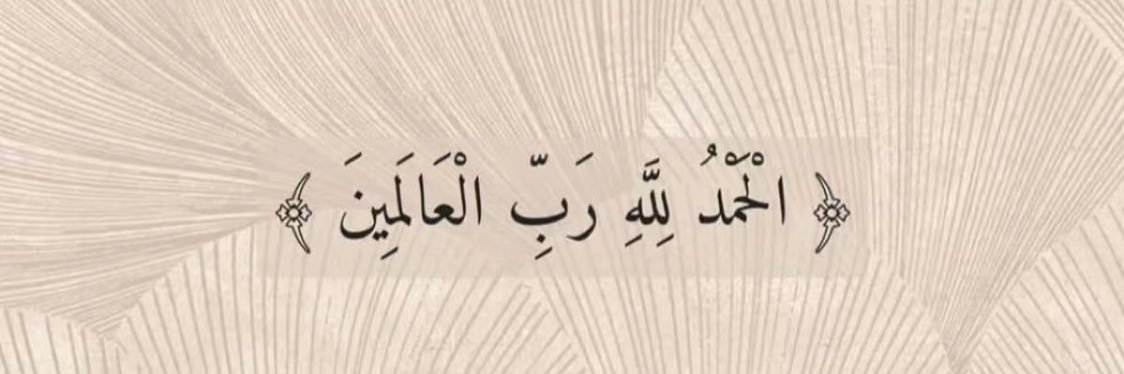 ﴿ الْحَمْدُ لِلَّهِ رَبِّ الْعَالَمِينَ ﴾